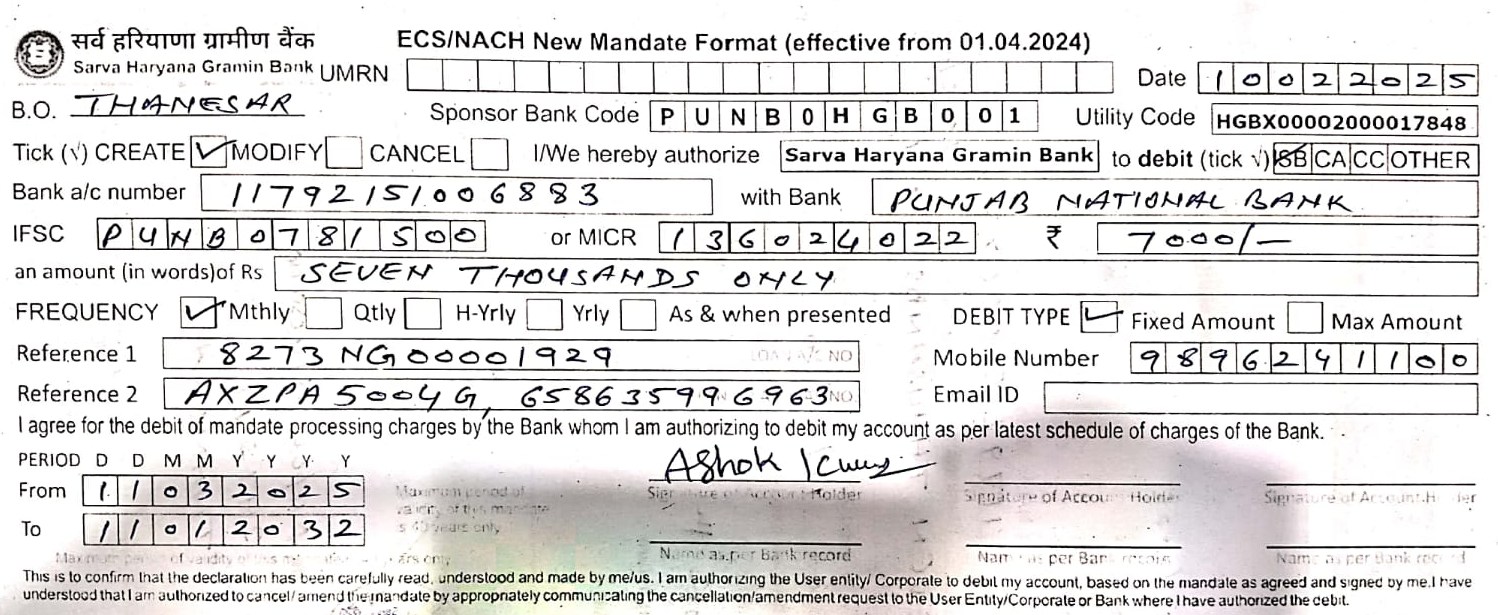 सर्व हरियाणा ग्रामीण बैंक ECS/NACH New Mandate Format (effective from 01.04.2024)
Sarva Haryana Gramin Bank UMRN Date 10022025
B.O. THANESAR Sponsor Bank Code PUNB0HGB001 Utility Code HGBX00002000017848
Tick (√) CREATE ✓ MODIFY CANCEL I/We hereby authorize Sarva Haryana Gramin Bank to debit (tick √) SB CA CC OTHER
Bank a/c number 11792151006883 with Bank PUNJAB NATIONAL BANK
IFSC PUNB0781500 or MICR 136024022 ₹ 7000/-
an amount (in words)of Rs SEVEN THOUSANDS ONLY
FREQUENCY ✓ Mthly Qtly H-Yrly Yrly As & when presented DEBIT TYPE ✓ Fixed Amount Max Amount
Reference 1 8273NG00001929 LOAN A/C NO Mobile Number 9896241100
Reference 2 AXZPA5004G, 658635996963 NO. Email ID
I agree for the debit of mandate processing charges by the Bank whom I am authorizing to debit my account as per latest schedule of charges of the Bank.
PERIOD D D M M Y Y Y Y Ashok
From 11032025 Maximum period of Signature of Account Holder Signature of Account Holder Signature of Account Holder
validity of this mandate
To 11012032 is 40 years only
Name as per Bank record Name as per Bank record Name as per Bank record
Maximum period of validity of this years only
This is to confirm that the declaration has been carefully read, understood and made by me/us. I am authorizing the User entity/ Corporate to debit my account, based on the mandate as agreed and signed by me. I have
understood that I am authorized to cancel/amend the mandate by appropriately communicating the cancellation/amendment request to the User Entity/Corporate or Bank where I have authorized the debit.